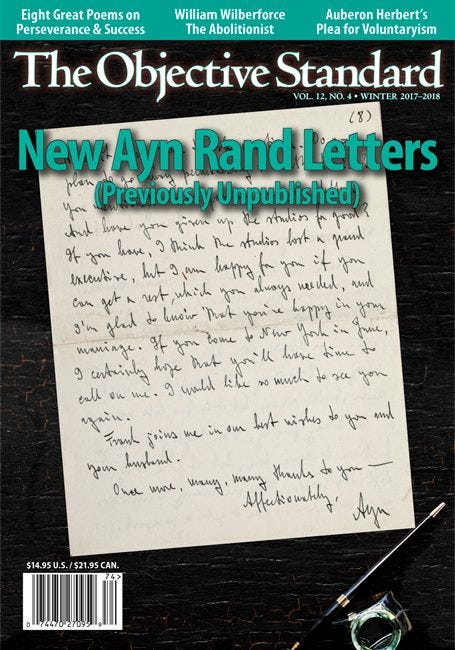 Eight Great Poems on
Perseverance & Success
William Wilberforce
The Abolitionist
Auberon Herbert's
Plea for Voluntaryism
The Objective Standard
VOL. 12, NO. 4 • WINTER 2017–2018
(8)
New Ayn Rand Letters
(Previously Unpublished)
And have you given up the studios for good?
If you have, I think the studios lost a grand
executive, but I am happy for you if you
can get a rest, which you always needed, and
I'm glad to know that you're happy in your
marriage. If you come to New York in June,
I certainly hope that you'll have time to
call on me. I would like so much to see you
again.
Frank joins me in our best wishes to you and
your husband.
Once more, many, many thanks to you —
Affectionately,
Ayn
$14.95 U.S. / $21.95 CAN.
74>
0 74470 27095 9